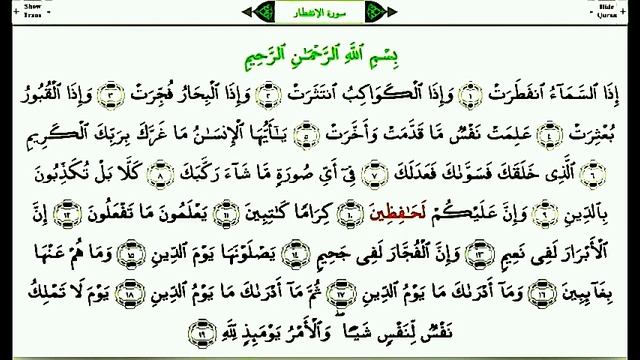 Show Trans سورة الإنفطار Hide Quran
بِسْمِ ٱللَّهِ ٱلرَّحْمَٰنِ ٱلرَّحِيمِ
إِذَا ٱلسَّمَآءُ ٱنفَطَرَتْ ١ وَإِذَا ٱلْكَوَاكِبُ ٱنتَثَرَتْ ٢ وَإِذَا ٱلْبِحَارُ فُجِّرَتْ ٣ وَإِذَا ٱلْقُبُورُ
بُعْثِرَتْ ٤ عَلِمَتْ نَفْسٌ مَّا قَدَّمَتْ وَأَخَّرَتْ ٥ يَٰٓأَيُّهَا ٱلْإِنسَٰنُ مَا غَرَّكَ بِرَبِّكَ ٱلْكَرِيمِ
٦ ٱلَّذِى خَلَقَكَ فَسَوَّىٰكَ فَعَدَلَكَ ٧ فِىٓ أَىِّ صُورَةٍ مَّا شَآءَ رَكَّبَكَ ٨ كَلَّا بَلْ تُكَذِّبُونَ
بِٱلدِّينِ ٩ وَإِنَّ عَلَيْكُمْ لَحَٰفِظِينَ ١٠ كِرَامًا كَٰتِبِينَ ١١ يَعْلَمُونَ مَا تَفْعَلُونَ ١٢ إِنَّ
ٱلْأَبْرَارَ لَفِى نَعِيمٍ ١٣ وَإِنَّ ٱلْفُجَّارَ لَفِى جَحِيمٍ ١٤ يَصْلَوْنَهَا يَوْمَ ٱلدِّينِ ١٥ وَمَا هُمْ عَنْهَا
بِغَآئِبِينَ ١٦ وَمَآ أَدْرَىٰكَ مَا يَوْمُ ٱلدِّينِ ١٧ ثُمَّ مَآ أَدْرَىٰكَ مَا يَوْمُ ٱلدِّينِ ١٨ يَوْمَ لَا تَمْلِكُ
نَفْسٌ لِّنَفْسٍ شَيْـًٔا ۖ وَٱلْأَمْرُ يَوْمَئِذٍ لِّلَّهِ ١٩